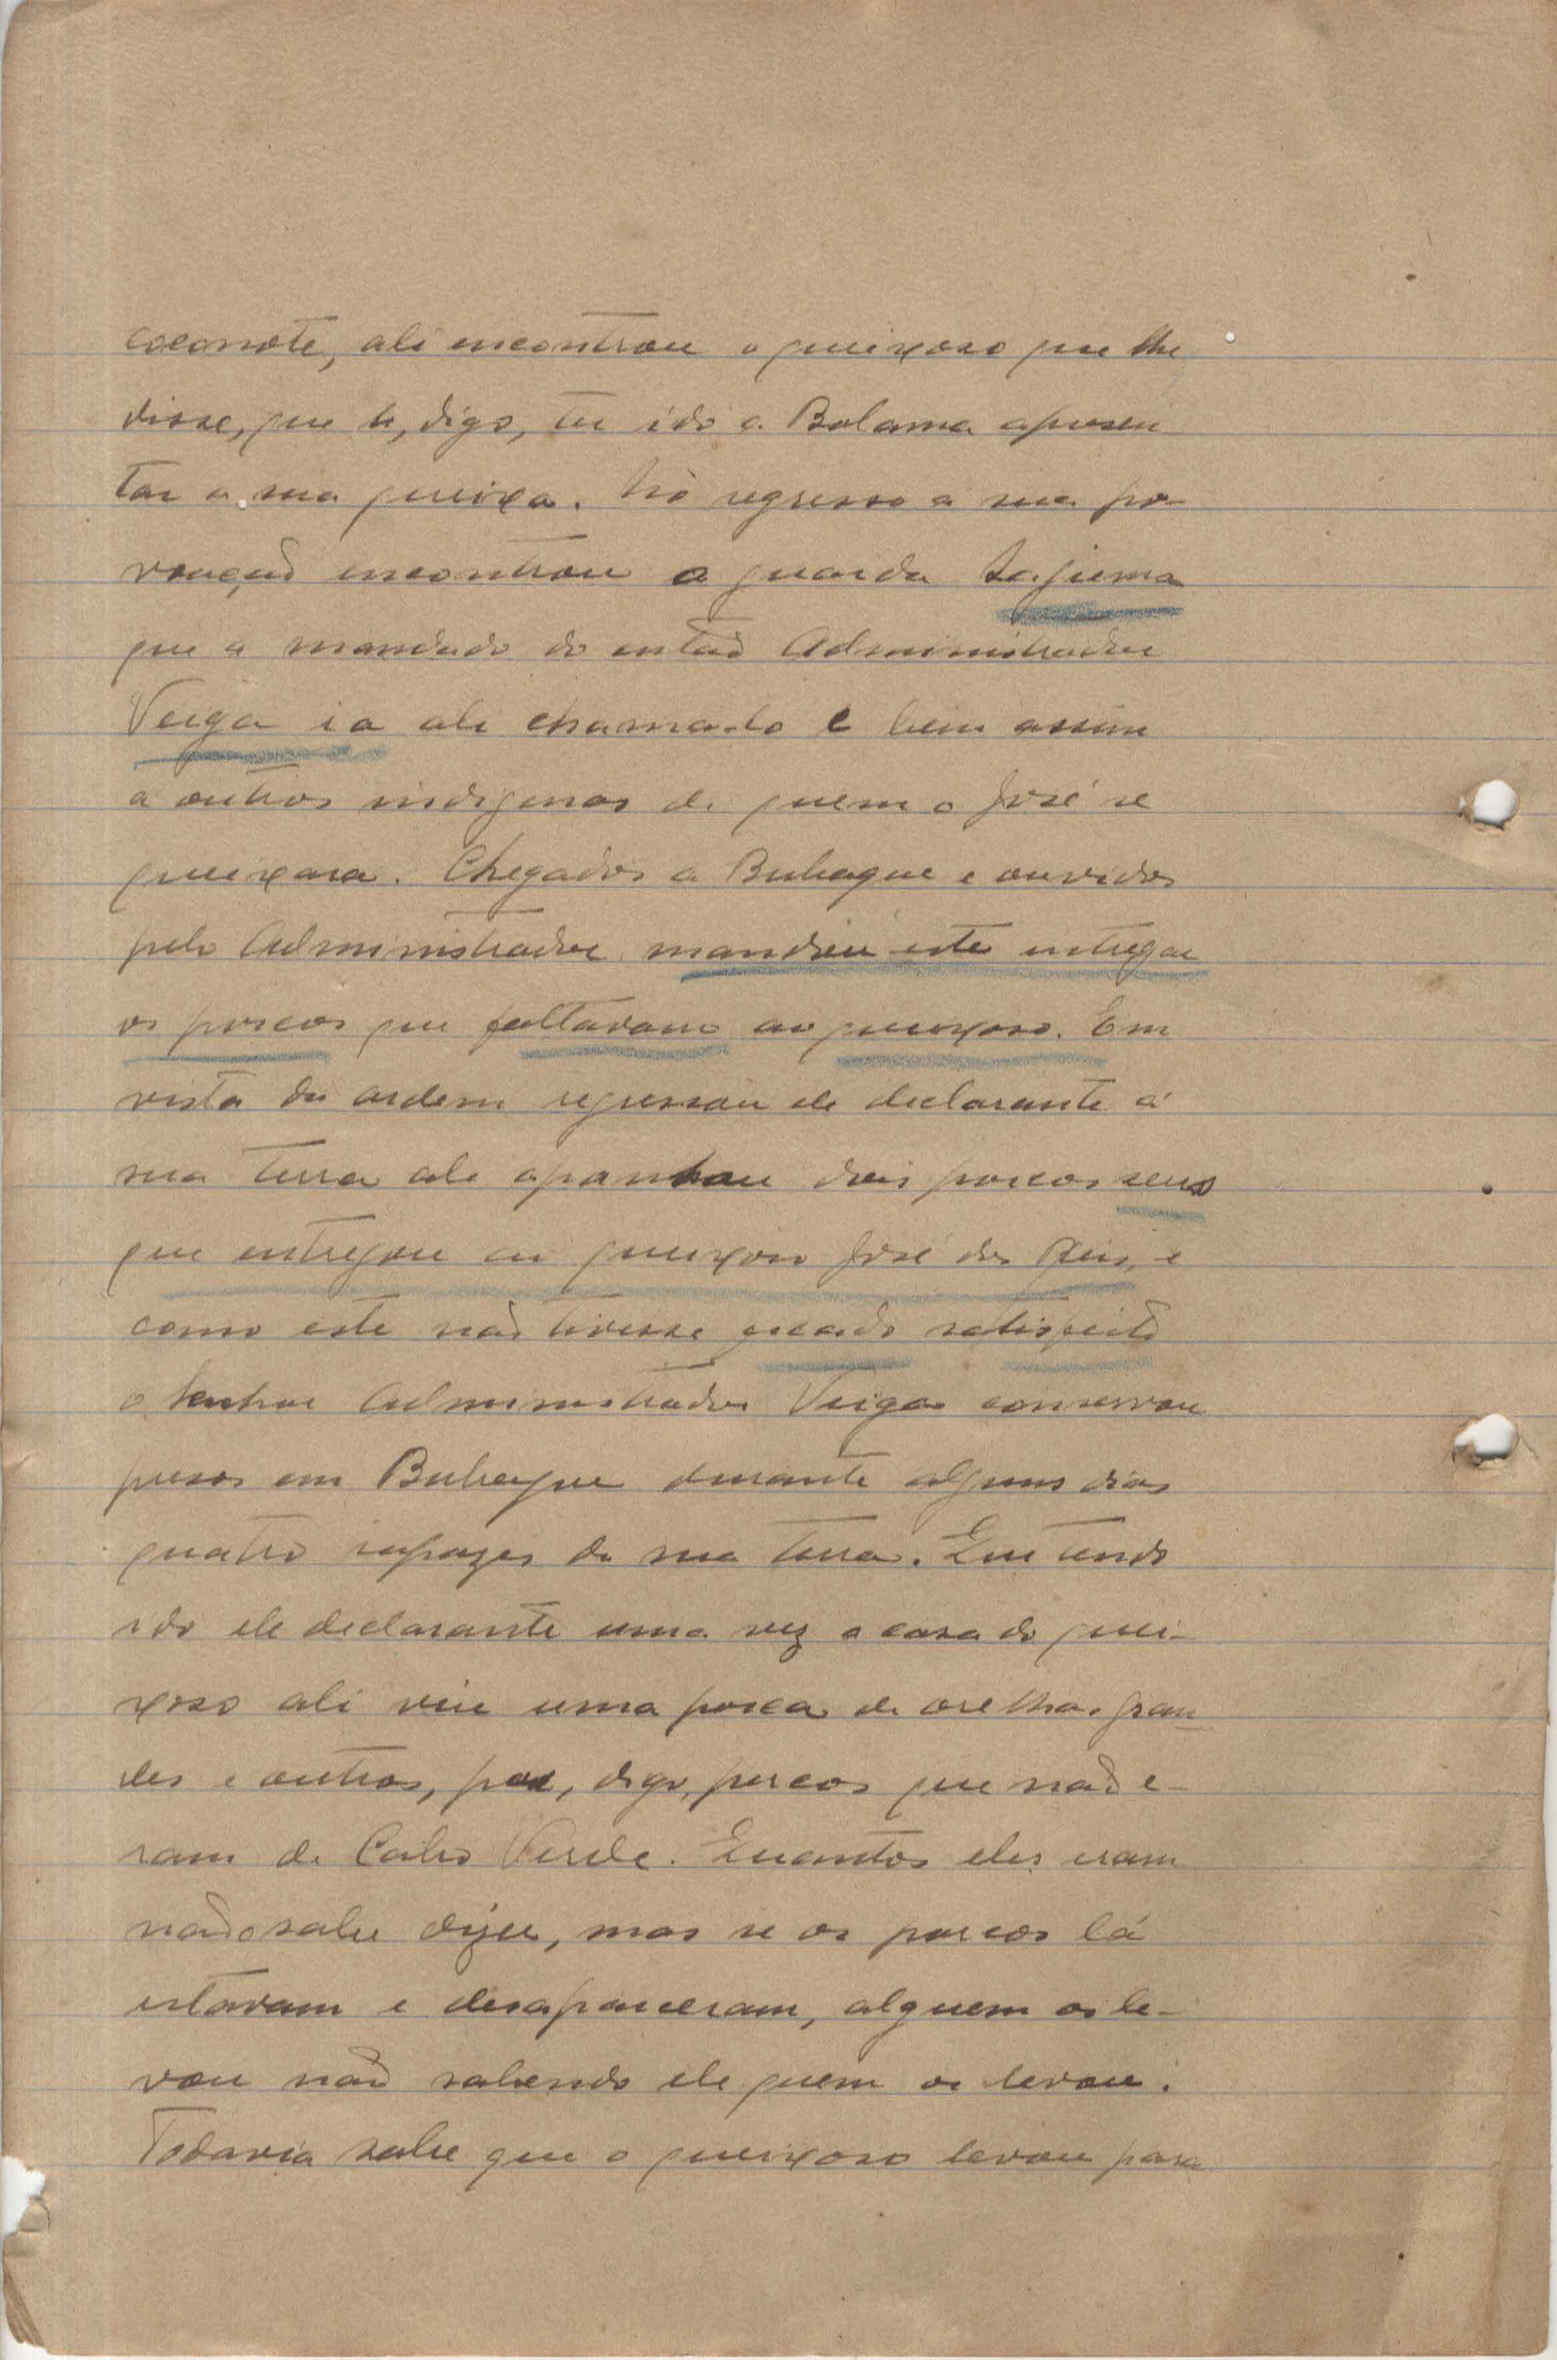 coconote, ali encontrou o queixoso que lhe
disse, que h, digo, ter ido a Bolama apresen
tar a sua queixa. No regresso a sua po-
voação encontrou o guarda
que a mandado do então Administrador
Veiga ia ali chama-lo e bem assim
a outros indigenas de quem o José se
queixara. Chegados a Bubaque e ouvidos
pelo Administrador mandou este entregar
os porcos que faltavam ao queixoso. Em
vista da ordem regressou ele declarante á
sua terra ali apanhou dois porcos seus
que entregou ao queixoso José dos Reis, e
como este não tivesse ficado satisfeito
o Senhor Administrador Veiga conservou
presos em Bubaque durante alguns dias
quatro rapazes da sua terra. Que tendo
ido ele declarante uma vez a casa do quei-
xoso ali viu uma porca de orelhas gran
des e outros, por, digo, porcos que não e-
ram de Cabo Verde. Quantos eles eram
não sabe dizer, mas se os porcos lá
estavam e desapareceram, alguem os le-
vou não sabendo ele quem os levou.
Todavia sabe que o queixoso levou para